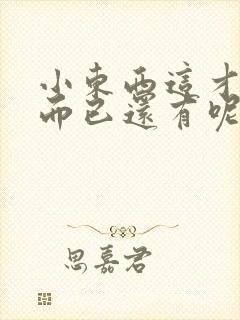 小東西這才
而已還有呢
思嘉君